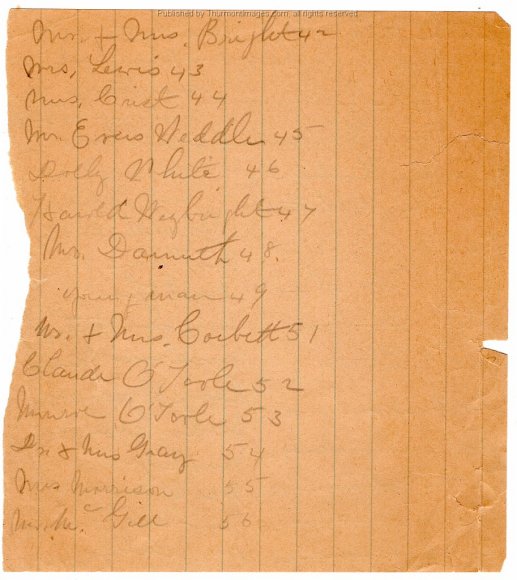 Published by ThurmontImages.com, all rights reserved
Mr. + Mrs. Bright 42
Mrs, Lewis 43
Mrs, Crist 44
Mr. Evers Weddle 45
Dolly White 46
Harold Weybright 47
Mr. Damuth 48.
man 49
Mr. + Mrs. Corbett 51
Claude O'Toole 52
Munroe O'Toole 53
Dr. & Mrs Gray 54
Mrs Morrison 55
Mc Gill 56